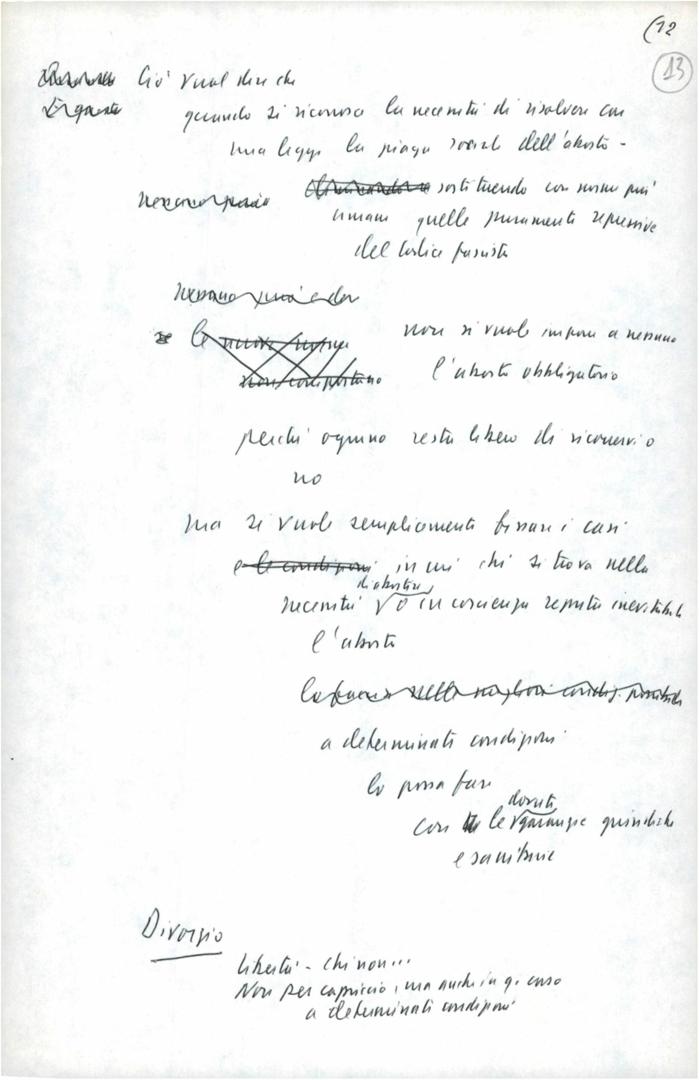 (12
13
Ciò vuol dire che
E questo
quando si riconosce la necessità di risolvere con
una legge la piaga sociale dell'aborto -
sostituendo con norme più
umane quelle puramente repressive
del codice fascista
nessuno può
le nuove norme non si vuole imporre a nessuno
non comportano l'aborto obbligatorio
perché ognuno resta libero di ricorrervi o
no
ma si vuole semplicemente fissare i casi
e le condizioni in cui chi si trova nella
di abortire
necessità √ o in coscienza reputa inevitabile
l'aborto
lo faccia nelle migliori condiz. possibili
a determinate condizioni
lo possa fare
dovute
con le √ garanzie giuridiche
e sanitarie
Divorzio
libertà - chi non...
Non per capriccio, ma anche in q. caso
a determinate condizioni